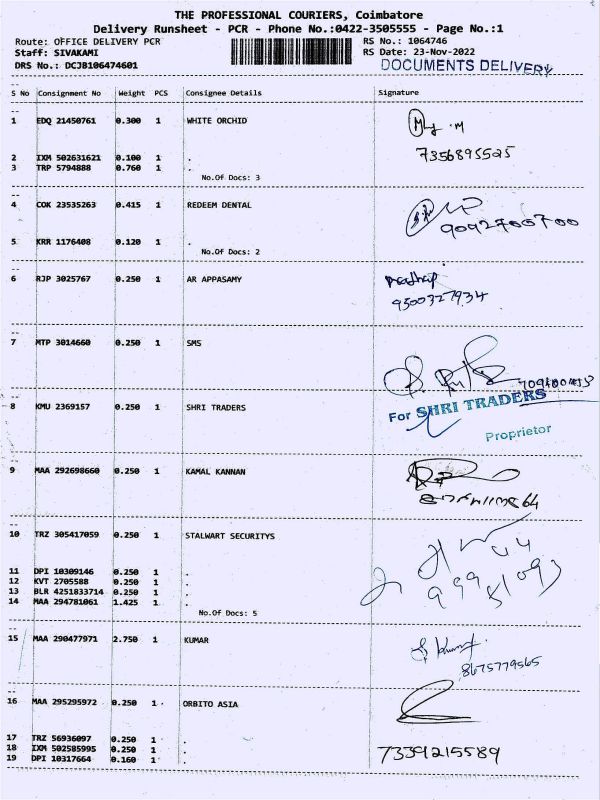 THE PROFESSIONAL COURIERS, Coimbatore
Delivery Runsheet - PCR - Phone No.:0422-3505555 - Page No.:1
Route: OFFICE DELIVERY PCR RS No.: 1064746
Staff: SIVAKAMI RS Date: 23-Nov-2022
DRS No.: DCJB106474601 DOCUMENTS DELIVERY
S No Consignment No Weight PCS Consignee Details Signature
1 EDQ 21450761 0.300 1 WHITE ORCHID
7356895525
2 IXM 502631621 0.100 1 .
3 TRP 5794888 0.760 1 .
No.Of Docs: 3
4 COK 23535263 0.415 1 REDEEM DENTAL
9092700700
5 KRR 1176408 0.120 1 .
No.Of Docs: 2
6 RJP 3025767 0.250 1 AR APPASAMY
9500327934
7 MTP 3014660 0.250 1 SMS
8 KMU 2369157 0.250 1 SHRI TRADERS
For SHRI TRADERS
Proprietor
9 MAA 292698660 0.250 1 KAMAL KANNAN
10 TRZ 305417059 0.250 1 STALWART SECURITYS
11 DPI 10309146 0.250 1 .
12 KVT 2705588 0.250 1 .
13 BLR 4251833714 0.250 1 .
14 MAA 294781061 1.425 1 .
No.Of Docs: 5
15 MAA 290477971 2.750 1 KUMAR
8675779565
16 MAA 295295972 0.250 1 ORBITO ASIA
17 TRZ 56936097 0.250 1 .
18 IXM 502585995 0.250 1 .
7339215589
19 DPI 10317664 0.160 1 .